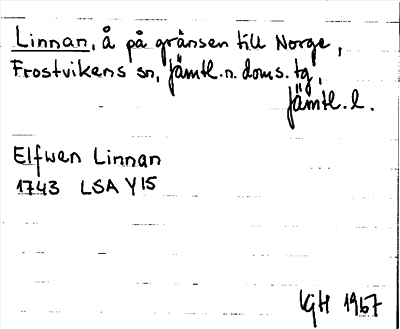 Linnan, å på gränsen till Norge,
Frostvikens sn, Jämtl. n. doms. tg,
Jämtl. l.
Elfwen Linnan
1743 LSA Y15
GH 1967